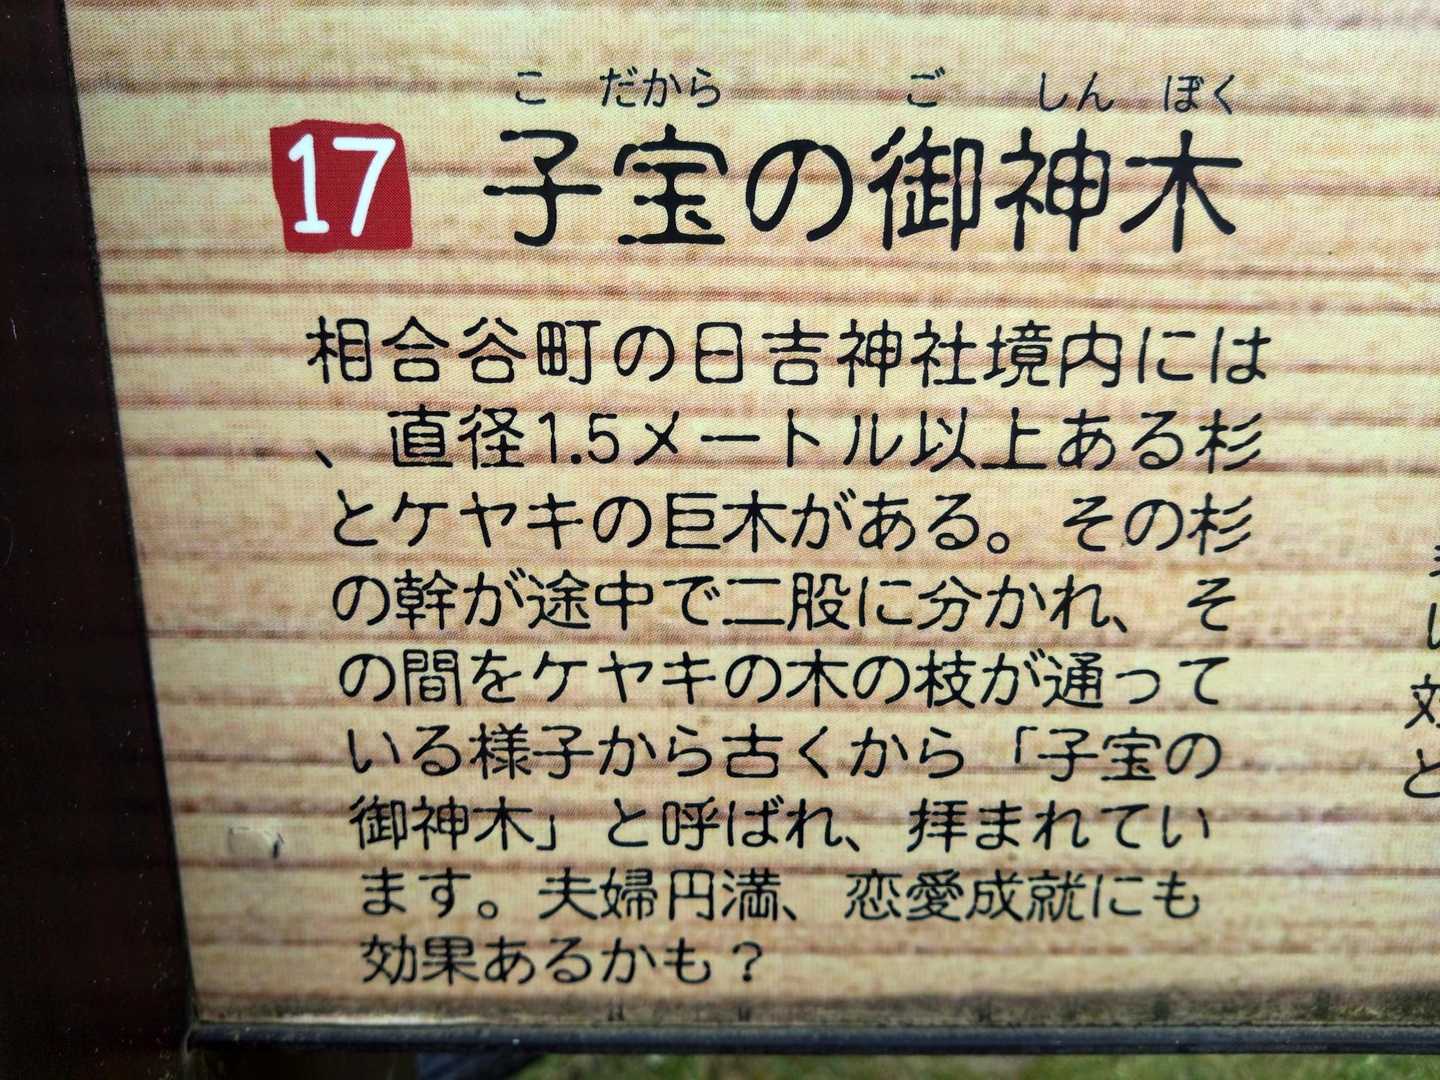 こ だから ご しん ぼく
17 子宝の御神木
相合谷町の日吉神社境内には
、直径1.5メートル以上ある杉
とケヤキの巨木がある。その杉
の幹が途中で二股に分かれ、そ
の間をケヤキの木の枝が通って
いる様子から古くから「子宝の
御神木」と呼ばれ、拝まれてい
ます。夫婦円満、恋愛成就にも
効果あるかも？